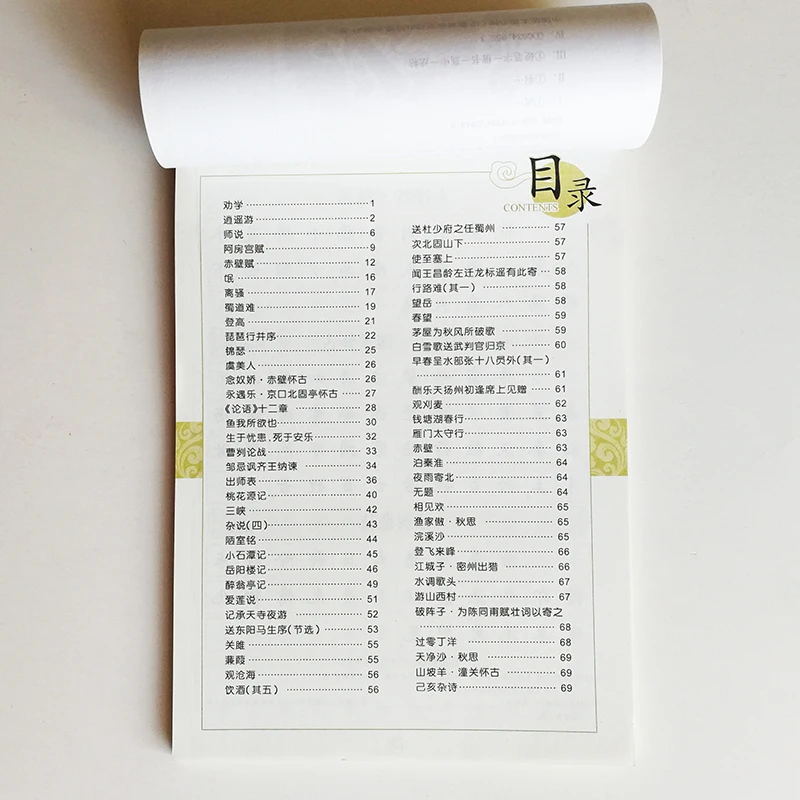 目录
CONTENTS
劝学 1
逍遥游 2
师说 6
阿房宫赋 9
赤壁赋 12
氓 16
离骚 17
蜀道难 19
登高 21
琵琶行并序 22
锦瑟 25
虞美人 26
念奴娇·赤壁怀古 26
永遇乐·京口北固亭怀古 27
《论语》十二章 28
鱼我所欲也 30
生于忧患,死于安乐 32
曹刿论战 33
邹忌讽齐王纳谏 34
出师表 36
桃花源记 40
三峡 42
杂说(四) 43
陋室铭 44
小石潭记 45
岳阳楼记 46
醉翁亭记 49
爱莲说 51
记承天寺夜游 52
送东阳马生序(节选) 53
关雎 55
蒹葭 55
观沧海 56
饮酒(其五) 56
送杜少府之任蜀州 57
次北固山下 57
使至塞上 57
闻王昌龄左迁龙标遥有此寄 58
行路难(其一) 58
望岳 58
春望 59
茅屋为秋风所破歌 59
白雪歌送武判官归京 60
早春呈水部张十八员外(其一)
61
酬乐天扬州初逢席上见赠 61
观刈麦 62
钱塘湖春行 63
雁门太守行 63
赤壁 63
泊秦淮 64
夜雨寄北 64
无题 64
相见欢 65
渔家傲·秋思 65
浣溪沙 65
登飞来峰 66
江城子·密州出猎 66
水调歌头 67
游山西村 67
破阵子·为陈同甫赋壮词以寄之
68
过零丁洋 68
天净沙·秋思 69
山坡羊·潼关怀古 69
己亥杂诗 69